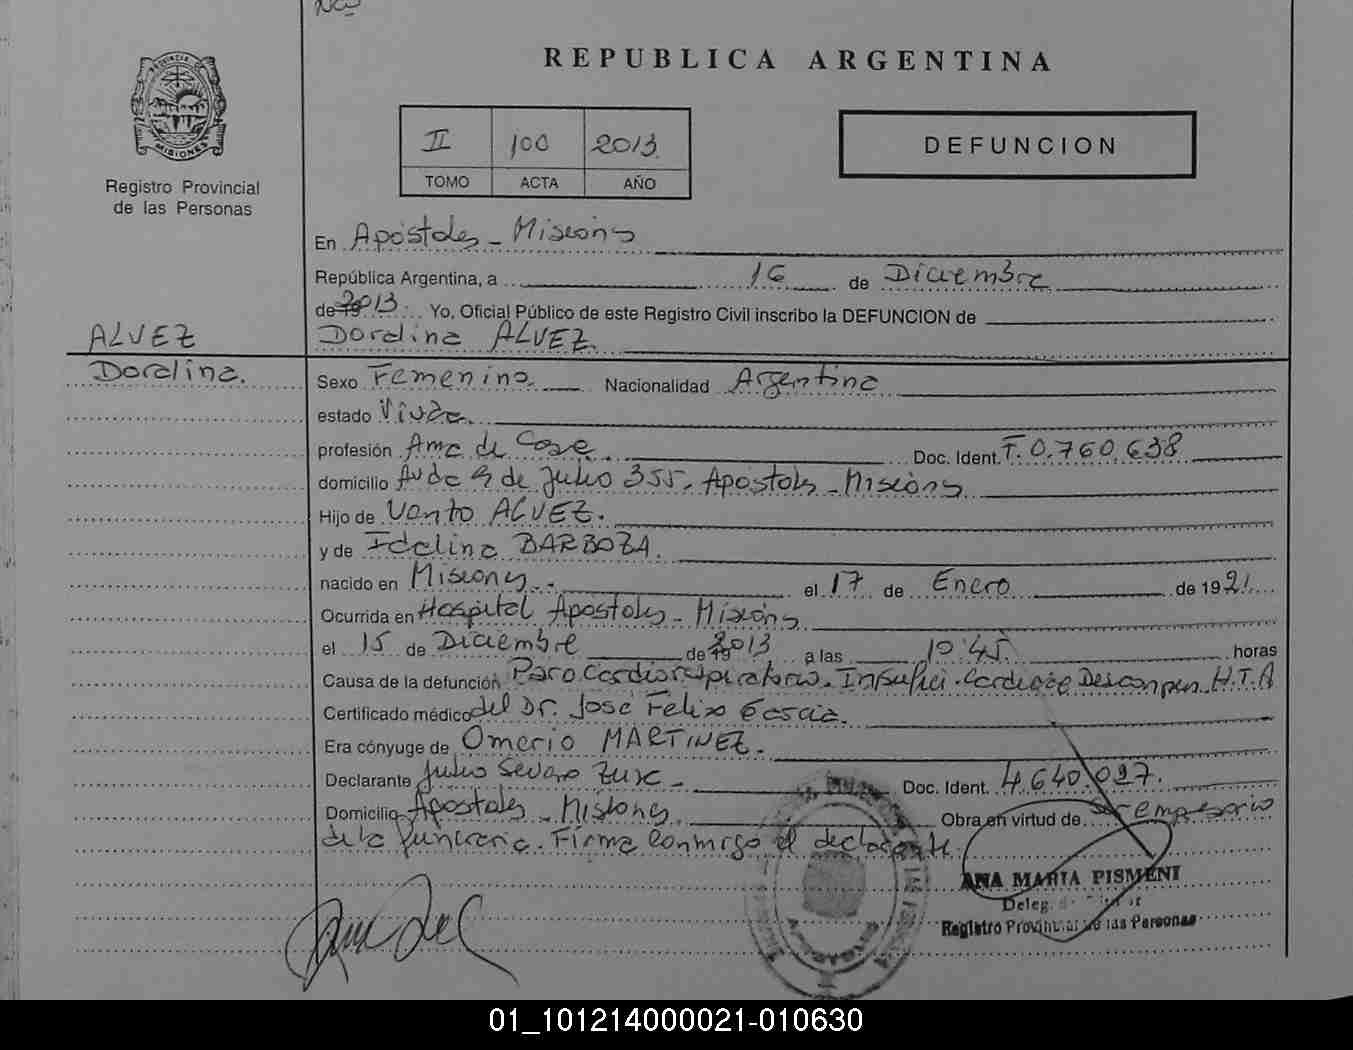 REPUBLICA ARGENTINA
PROVINCIA DE
MISIONES
Registro Provincial
de las Personas
II 100 2013
TOMO ACTA AÑO
DEFUNCION
En Apóstoles - Misiones
República Argentina, a 16 de Diciembre
de 19 2013 Yo, Oficial Público de este Registro Civil inscribo la DEFUNCION de
ALVEZ
Doralina ALVEZ.
Doralina.
Sexo Femenino. Nacionalidad Argentina
estado Viuda.
profesión Ama de Casa. Doc. Ident. F.0.760.638
domicilio Avda 9 de Julio 355. Apóstoles - Misiones
Hijo de ALVEZ.
y de Idalina BARBOZA.
nacido en Misiones. el 17 de Enero de 1921.
Ocurrida en Hospital Apóstoles - Misiones
el 15 de Diciembre de 19 2013 a las 10:45. horas
Causa de la defunción Paro Cardiorespiratorio. Insufici. Cardiaca Descompen. H.T.A
Certificado médico del Dr. José Felix Garcia.
Era cónyuge de Omerio MARTINEZ.
Declarante Julio Doc. Ident. 4.640.027.
Domicilio Apóstoles - Misiones Obra en virtud de ser empresario
de la funeraria. Firma conmigo el declarante.
ANA MARIA PISMENI
Registro Provincial de las Personas
01_101214000021-010630